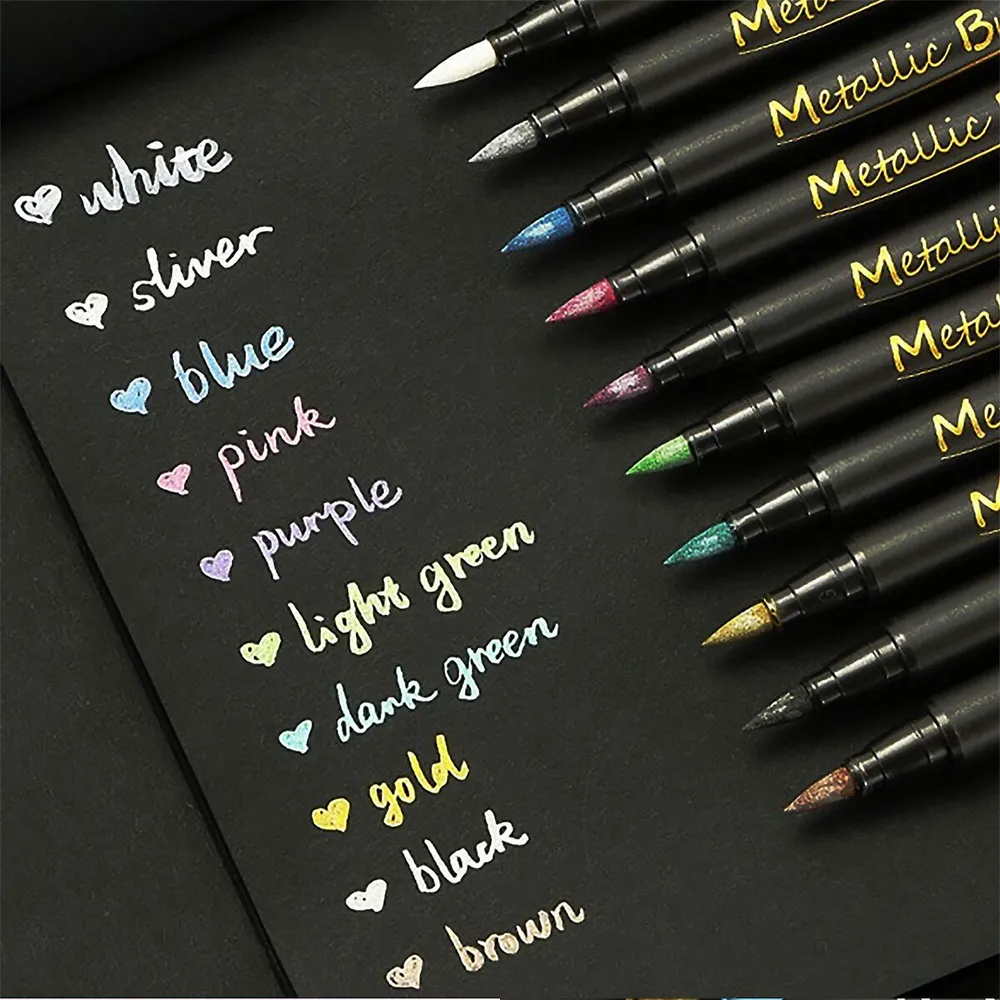 white
sliver
blue
pink
purple
light green
dark green
gold
black
brown
Metallic
Metallic B
Metallic
Metalli
Meta
Me
M